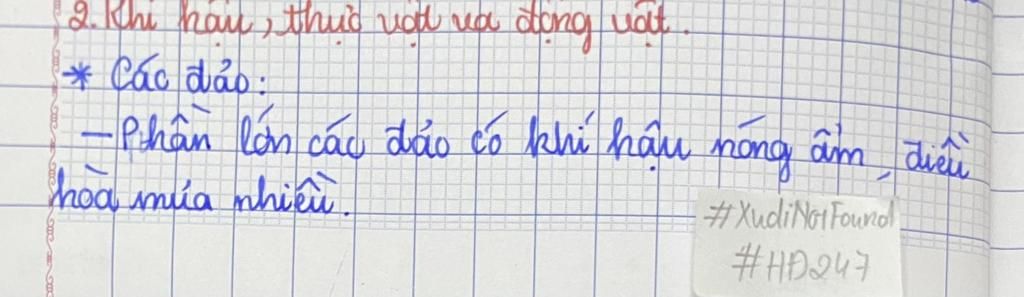 2. Khí hậu, thực vật và động vật.
* Các đảo:
- Phần lớn các đảo có khí hậu nóng ẩm, điều
hòa mưa nhiều.
#XudiNotFound
#HĐ247